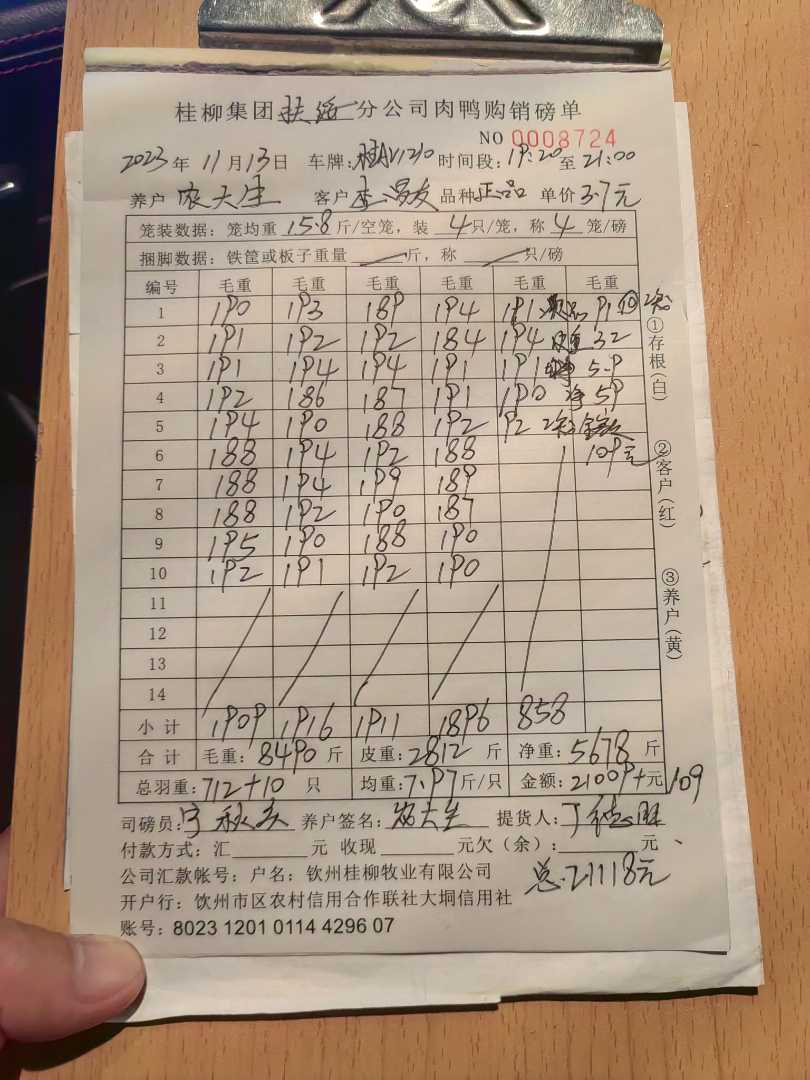 桂柳集团扶绥分公司肉鸭购销磅单
NO 0008724
2023年11月13日 车牌:桂AV1210 时间段:19:20至21:00
养户 农大生 客户 李 品种 正品 单价 3.7元
笼装数据:笼均重 15.8 斤/空笼,装 4 只/笼,称 4 笼/磅
捆脚数据:铁筐或板子重量 斤,称 只/磅
编号 毛重 毛重 毛重 毛重 毛重 毛重
1 190 193 189 194 191 次品 91 ⑩
2 191 192 192 184 194 皮重 32
3 191 194 194 191 191 59
4 192 186 187 191 190 净 59
5 194 190 188 192 92
6 188 194 192 188 109元
7 188 194 199 189
8 188 192 190 187
9 195 190 188 190
10 192 191 192 190
11
12
13
14
小计 1909 1916 1911 1896 858
合计 毛重:8490 斤 皮重:2812 斤 净重:5678 斤
总羽重:712+10 只 均重:7.97斤/只 金额:21009+元109
①存根(白)
②客户(红)
③养户(黄)
司磅员: 养户签名:农大生 提货人:
付款方式:汇 元 收现 元欠(余): 元
公司汇款帐号:户名:钦州桂柳牧业有限公司
总:21118元
开户行:钦州市区农村信用合作联社大垌信用社
账号:8023 1201 0114 4296 07